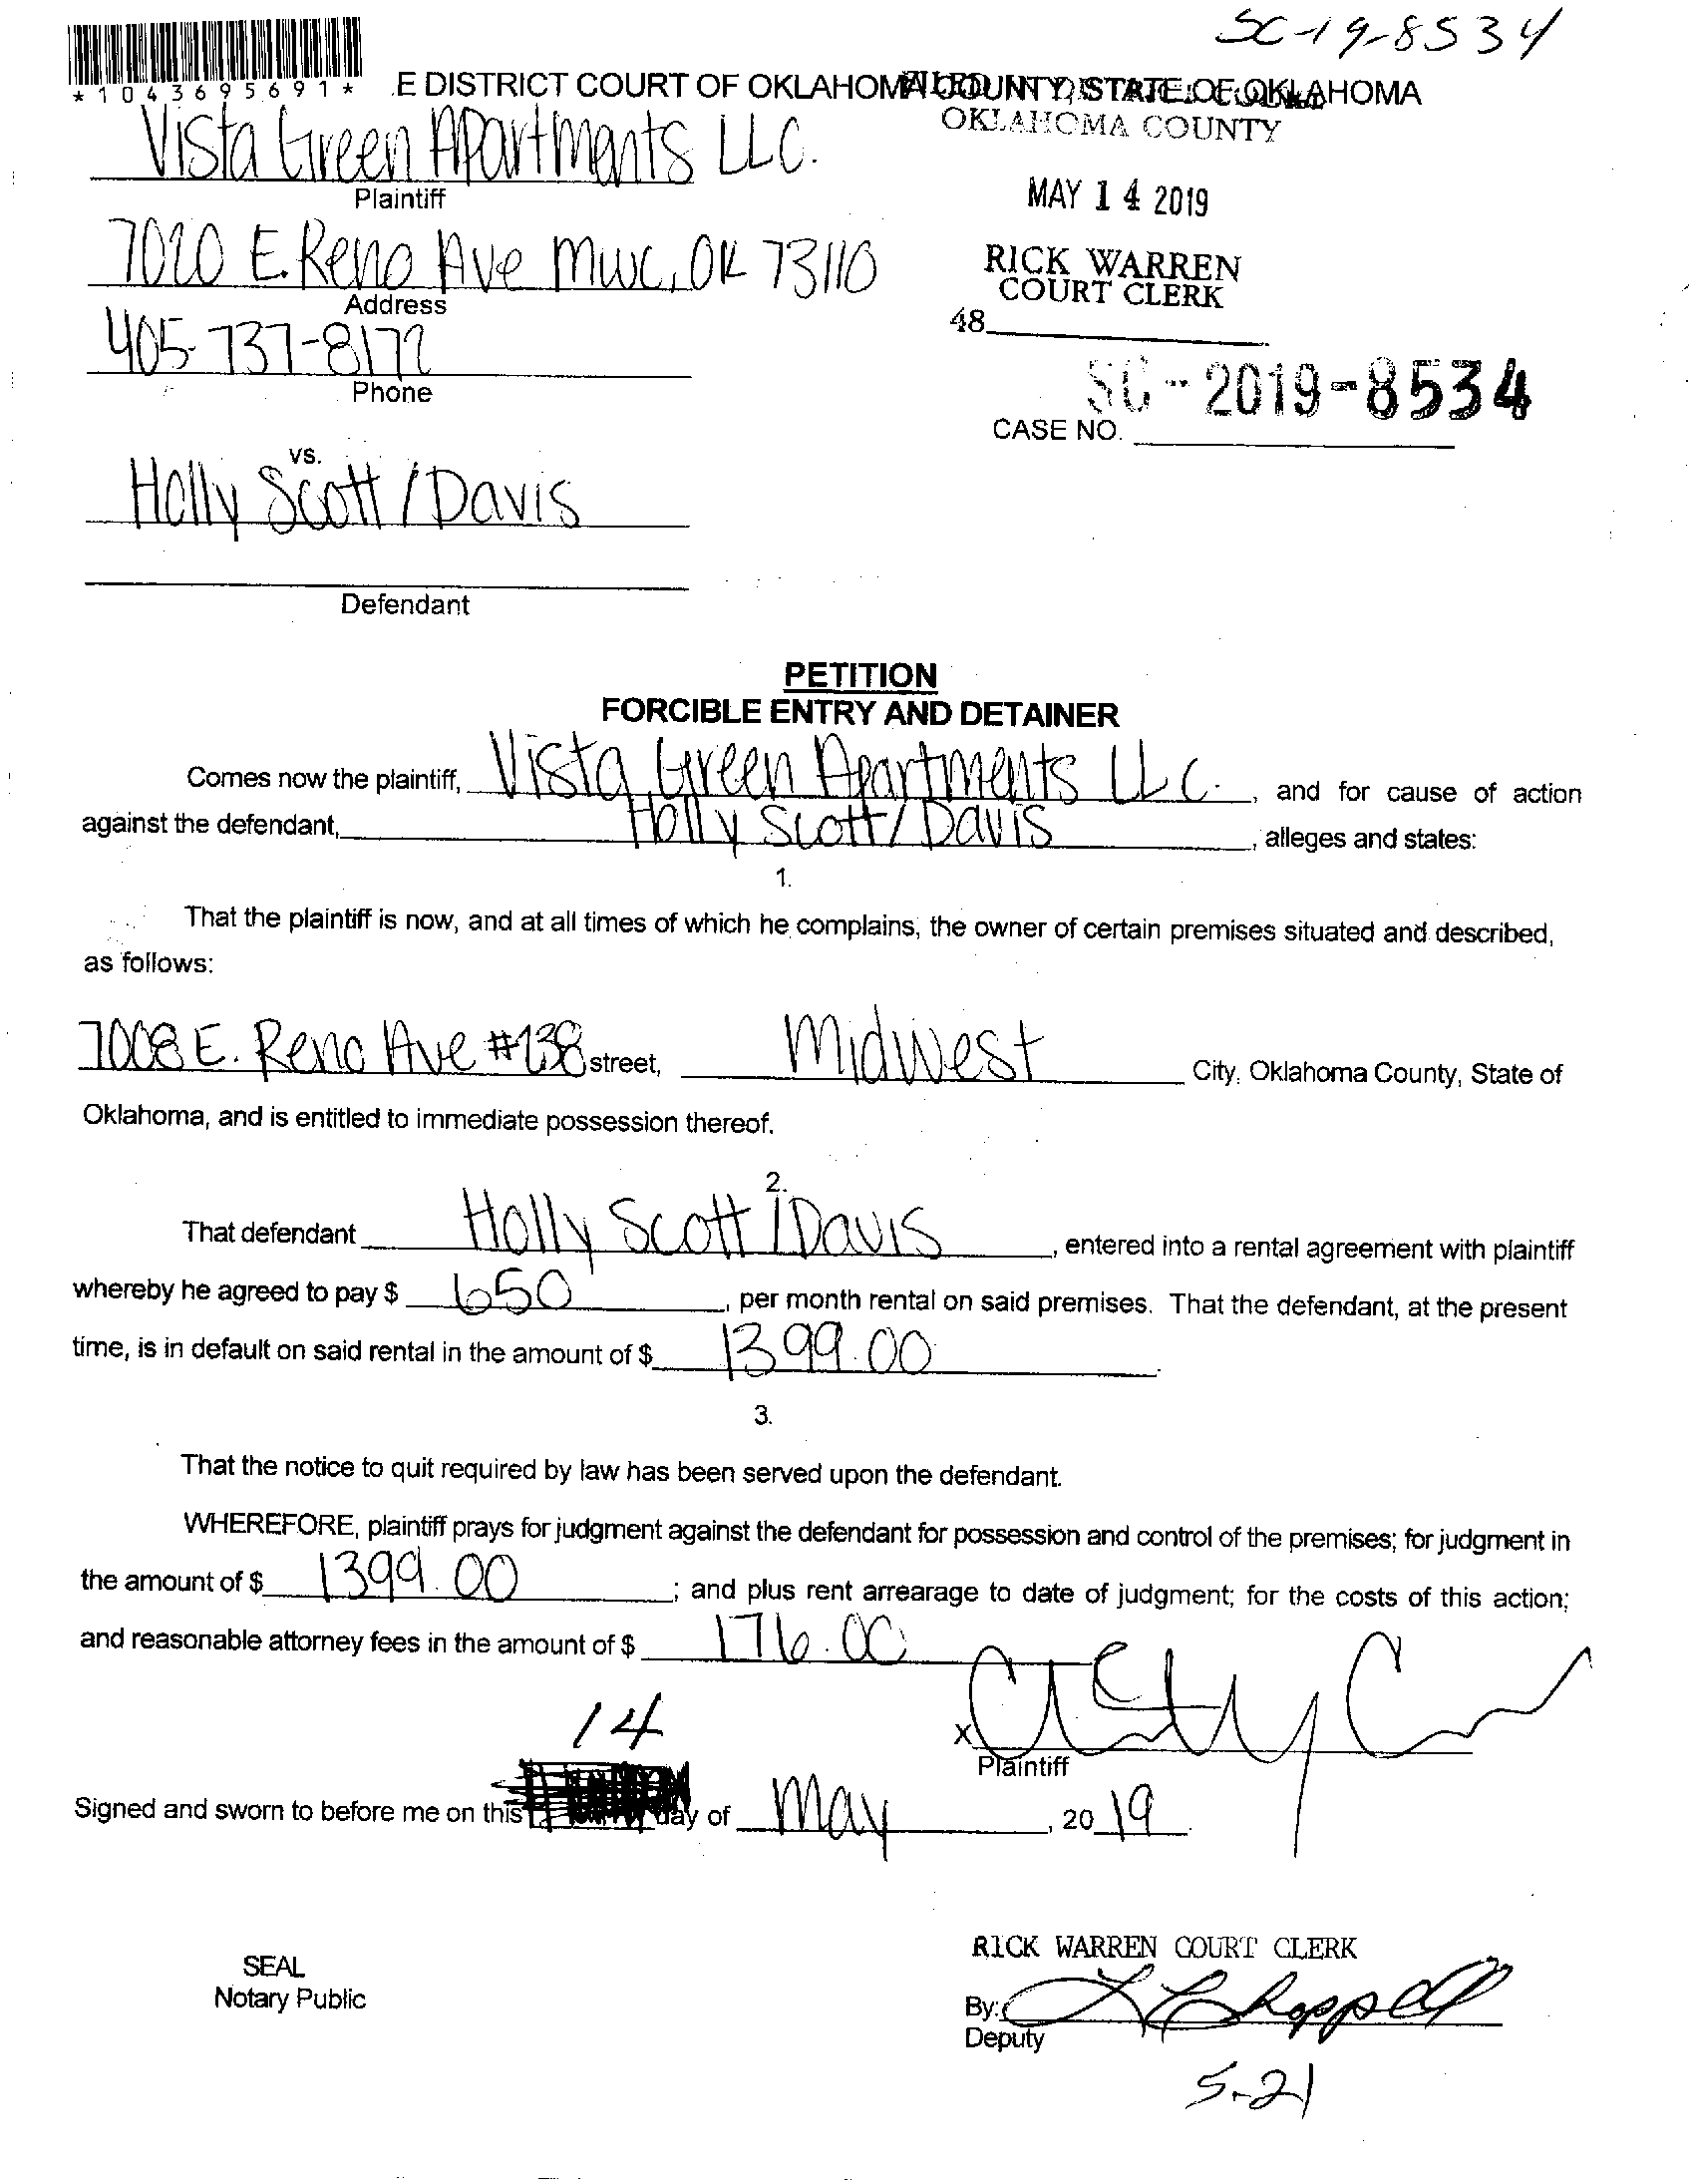 SC-19-8534
*1043695691*
E DISTRICT COURT OF OKLAHOMA COUNTY, STATE OF OKLAHOMA
OKLAHOMA COUNTY
Vista Green Apartments LLC.
Plaintiff
MAY 14 2019
7020 E. Reno Ave MWC, OK 73110
Address
RICK WARREN
COURT CLERK
48
405-737-8172
Phone
SC-2019-8534
CASE NO.
vs.
Holly Scott / Davis
Defendant
PETITION
FORCIBLE ENTRY AND DETAINER
Comes now the plaintiff, Vista Green Apartments LLC., and for cause of action
against the defendant, Holly Scott / Davis, alleges and states:
1.
That the plaintiff is now, and at all times of which he complains, the owner of certain premises situated and described,
as follows:
7008 E. Reno Ave #138 street, Midwest City, Oklahoma County, State of
Oklahoma, and is entitled to immediate possession thereof.
2.
That defendant Holly Scott / Davis, entered into a rental agreement with plaintiff
whereby he agreed to pay $ 650, per month rental on said premises. That the defendant, at the present
time, is in default on said rental in the amount of $ 1399.00.
3.
That the notice to quit required by law has been served upon the defendant.
WHEREFORE, plaintiff prays for judgment against the defendant for possession and control of the premises; for judgment in
the amount of $ 1399.00; and plus rent arrearage to date of judgment; for the costs of this action;
and reasonable attorney fees in the amount of $ 176.00
14
X
Plaintiff
Signed and sworn to before me on this day of May, 2019
RICK WARREN COURT CLERK
SEAL
Notary Public
By: L Chappell
Deputy
5-21